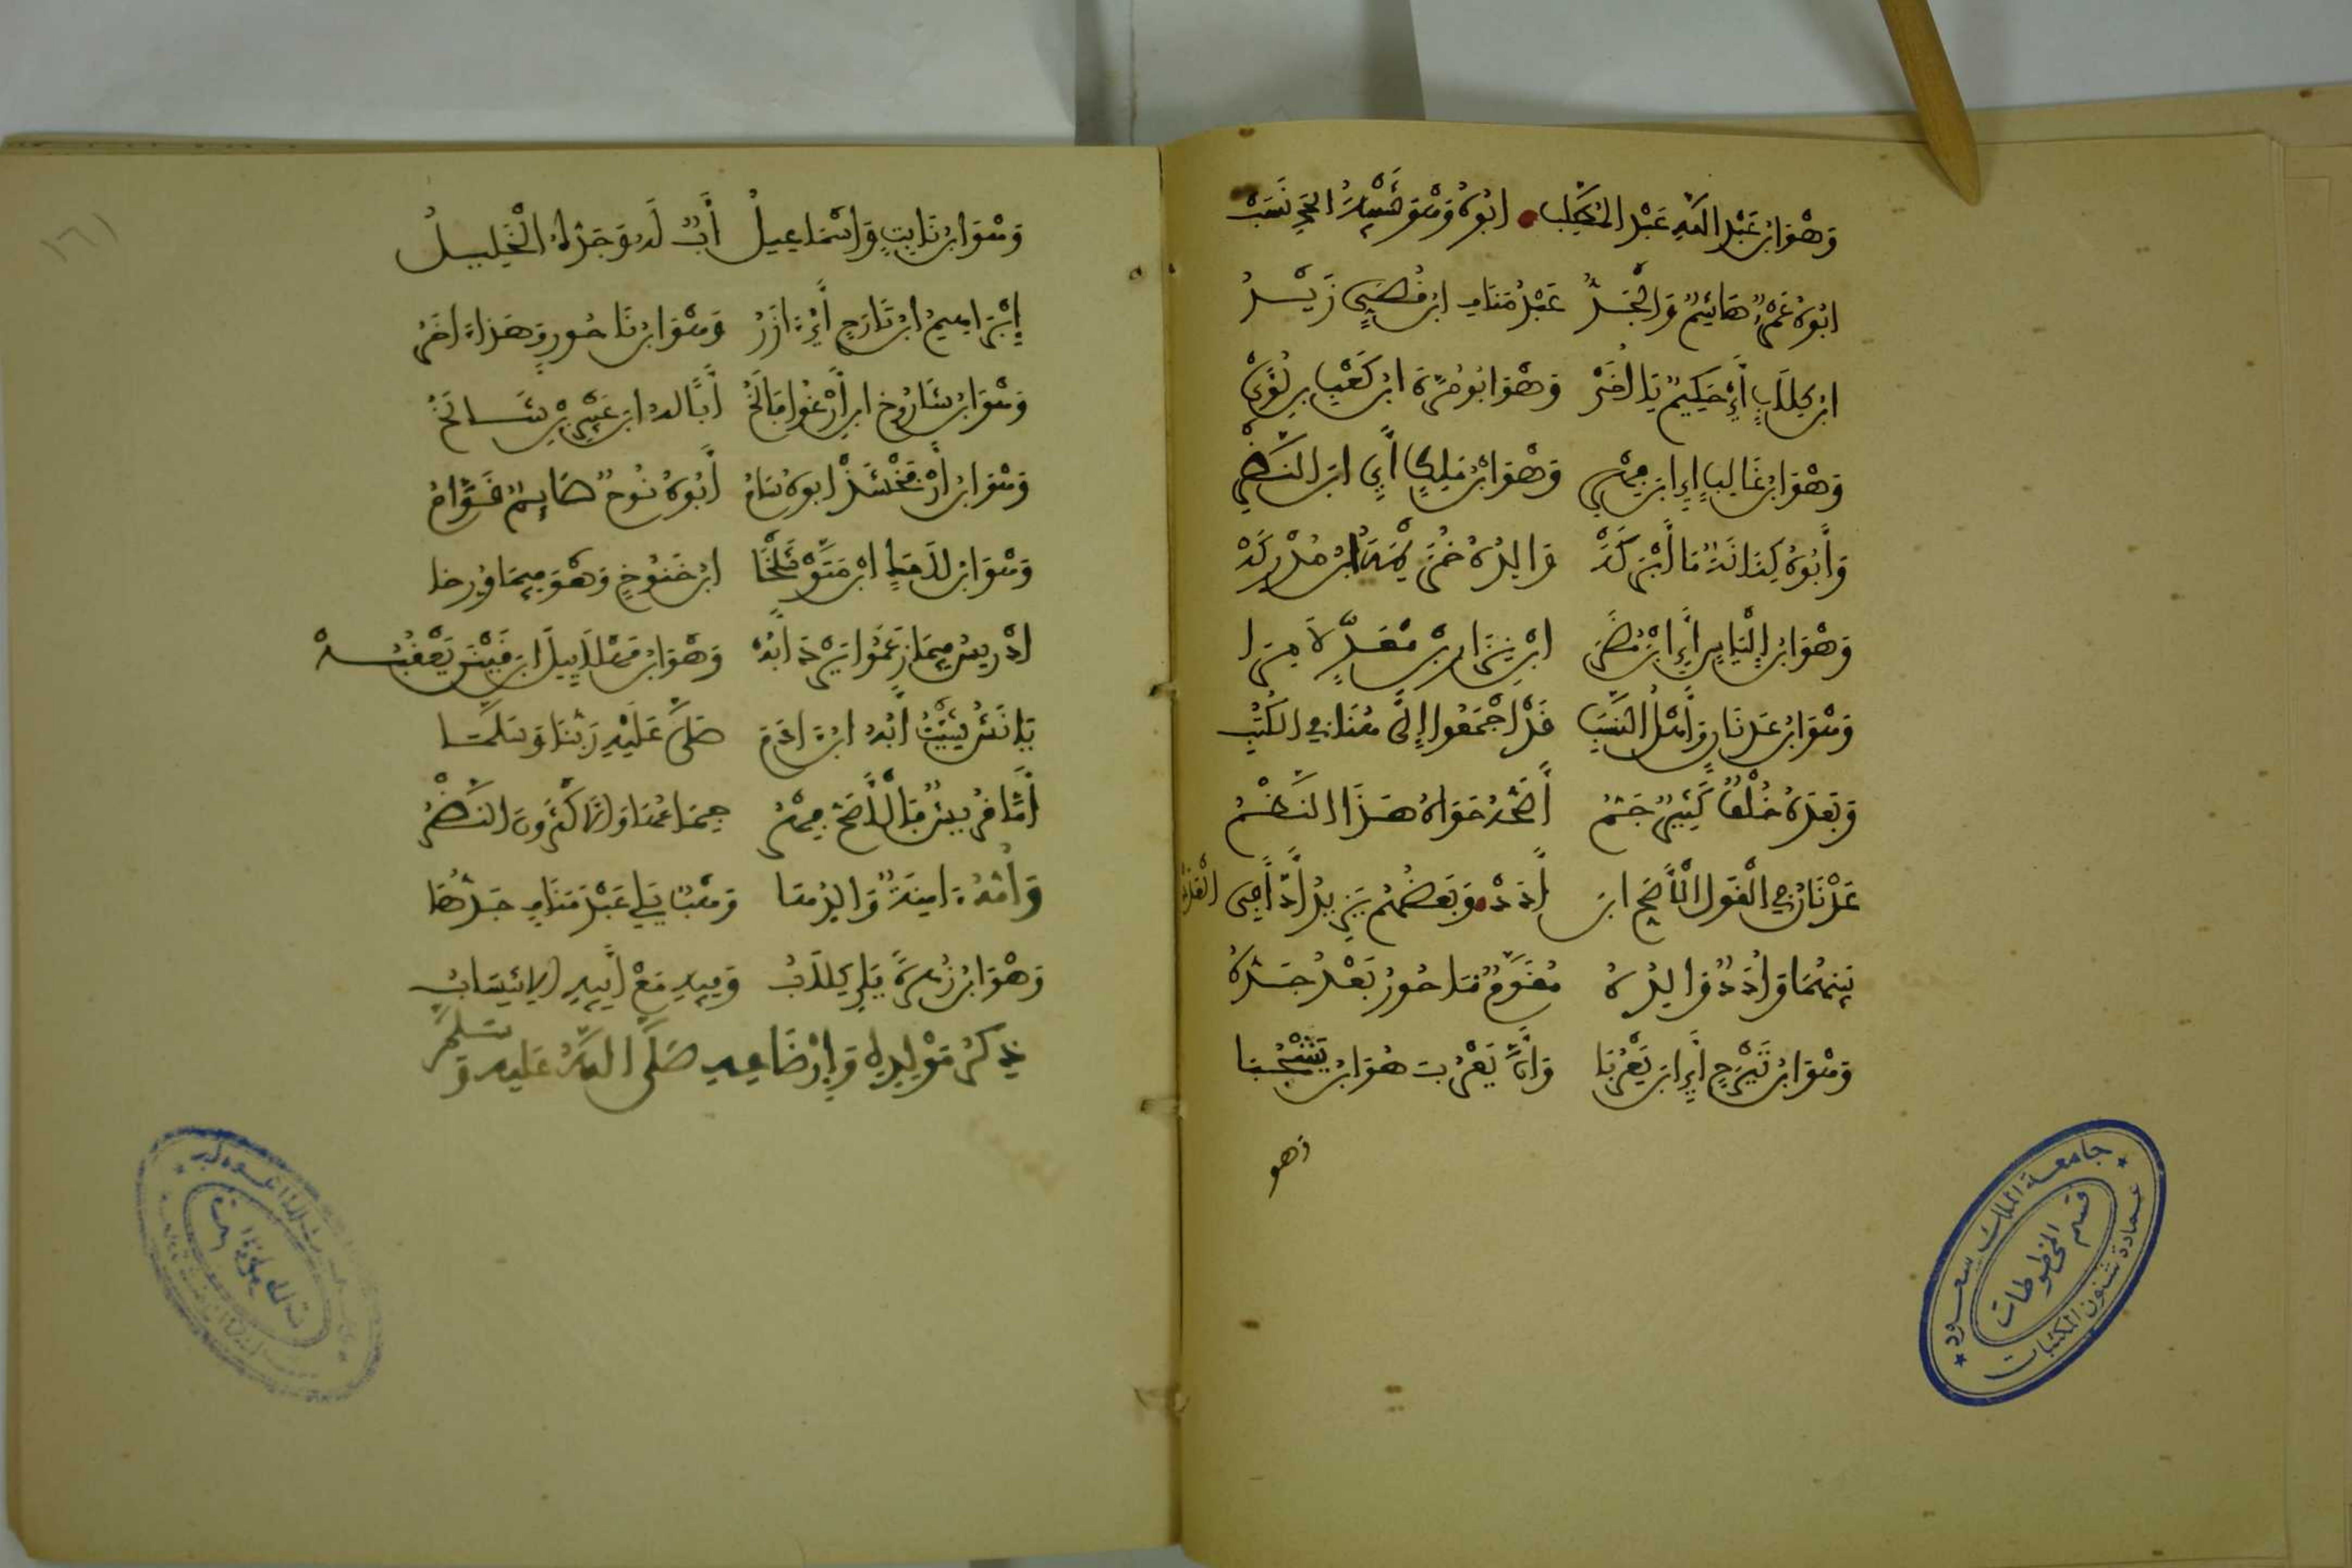 وَهْوَ ابْنُ عَبْدِ اللهِ عَبْدُ الْمُطَّلِبْ ابُوهُ وَهْوَ شَيْبَةُ الحَمْدِ نُسِبْ
ابُوهُ عَمْرٌو هَاشِمٌ وَالْجَدُّ عَبْدُ مَنَافِ ابْنُ قُصَيٍّ زَيْدُ
ابْنُ كِلَابٍ أَيْ حَكِيمٌ يَا أُخَيْ وَهْوَ ابُو مُرَّةَ ابْنُ كَعْبِ بْنِ لُؤَيْ
وَهْوَ ابْنُ غَالِبٍ أَيِ ابْنِ فِهْرِ وَهْوَ ابْنُ مَالِكٍ أَيِ ابْنِ النَّضْرِ
وَأَبُوهُ كِنَانَةٌ مَا أَبْرَكَهْ وَالِدُهُ خُزَيْمَةُ ابْنُ مُدْرِكَهْ
وَهْوَ ابْنُ إِلْيَاسٍ أَيِ ابْنِ مُضَرَ ابْنِ نِزَارِ بْنِ مَعَدٍّ لَا مِرَا
وَهْوَ ابْنُ عَدْنَانٍ وَأَهْلُ النَّسَبِ قَدْ اجْمَعُوا إِلَى هُنَا فِي الكُتُبِ
وَبَعْدَهُ خُلْفٌ كَثِيرٌ جَمُّ أَصَحُّهُ حَوَاهُ هَذَا النَّظْمُ
عَدْنَانُ فِي الْقَوْلِ الْأَصَحِّ ابْنُ أُدَدْ وَبَعْضُهُمْ يَزِيدُ أُدًّا فِي الْعَدَدْ
بَيْنَهُمَا وَأُدَدٌ وَالِدُهُ مُقَوَّمٌ نَاحُورُ بَعْدُ جَدُّهُ
وَهْوَ ابْنُ تَيْرَحٍ أَيِ ابْنِ يَعْرُبَا وَأَنَّ يَعْرُبَ هُوَ ابْنُ يَشْجُبَا
وهو
١٦
وَهْوَ ابْنُ نَابِتٍ وَإِسْمَاعِيلُ أَبٌ لَهُ وَجَدُّهُ الْخَلِيلُ
إِبْرَاهِيمُ ابْنُ تَارَحٍ أَيْ آزَرُ وَهْوَ ابْنُ نَاحُورٍ وَهَذَا آخَرُ
وَهْوَ ابْنُ شَارُوخِ ابْنِ أَرْغُو فَالَخُ أَبًا لَهُ ابْنُ عَيْبَرِ بْنِ شَالَخُ
وَهْوَ ابْنُ أَرْفَخْشَذْ ابُوهُ سَامُ أَبُوهُ نُوحٌ صَائِمٌ قَوَّامُ
وَهْوَ ابْنُ لَامَكِ ابْنِ مَتُّوشَلَخَا ابْنِ خَنُوخٍ وَهْوَ فِيمَا وُرِّخَا
ادْرِيسُ فِيمَا زَعَمُوا يَرْدُ أَبُهْ وَهْوَ ابْنُ مَهْلَايِيلَ ابْنِ قَيْنَنْ يَعْقُبُهْ
يَانَشُ شِيثٌ أَبُهُ ابْنُ آدَمَ صَلَّى عَلَيْهِ رَبُّنَا وَسَلَّمَا
أَمَّا قُرَيْشٌ فَالْأَصَحُّ فِهْرُ جِمَاعُهَا وَالْأَكْثَرُونَ النَّضْرُ
وَأُمُّهُ آمِنَةٌ وَالِدُهَا وَهْبٌ يَلِي عَبْدُ مَنَافِ جَدُّهَا
وَهْوَ ابْنُ زُهْرَةٍ يَلِي كِلَابُ وَفِيهِ مَعْ أَبِيهِ الِانْتِسَابُ
ذِكْرُ مَوْلِدِهِ وَإِرْضَاعِهِ صَلَّى اللهُ عَلَيهِ وَسَلَّمَ
جامعة الملك سعود
قسم المخطوطات
عمادة شئون المكتبات